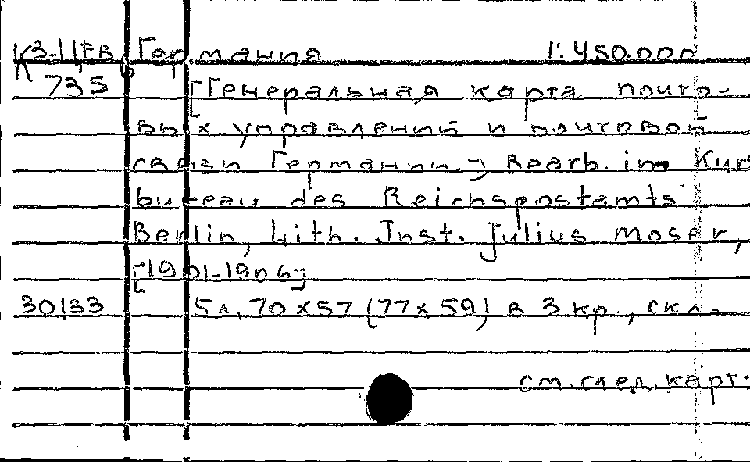 К3-IIгв Германия 1:450.000
К 735 [Генеральная карта почто-
вых управлений и почтовой
связи Германии], Bearb. im Kur
bureau des Reichspostamts
Berlin, Lith. Inst. Julius Moser,
[1901-1906]
30133 5л, 70х57 (77х59) в 3 кр, скл.
см. след. карт.